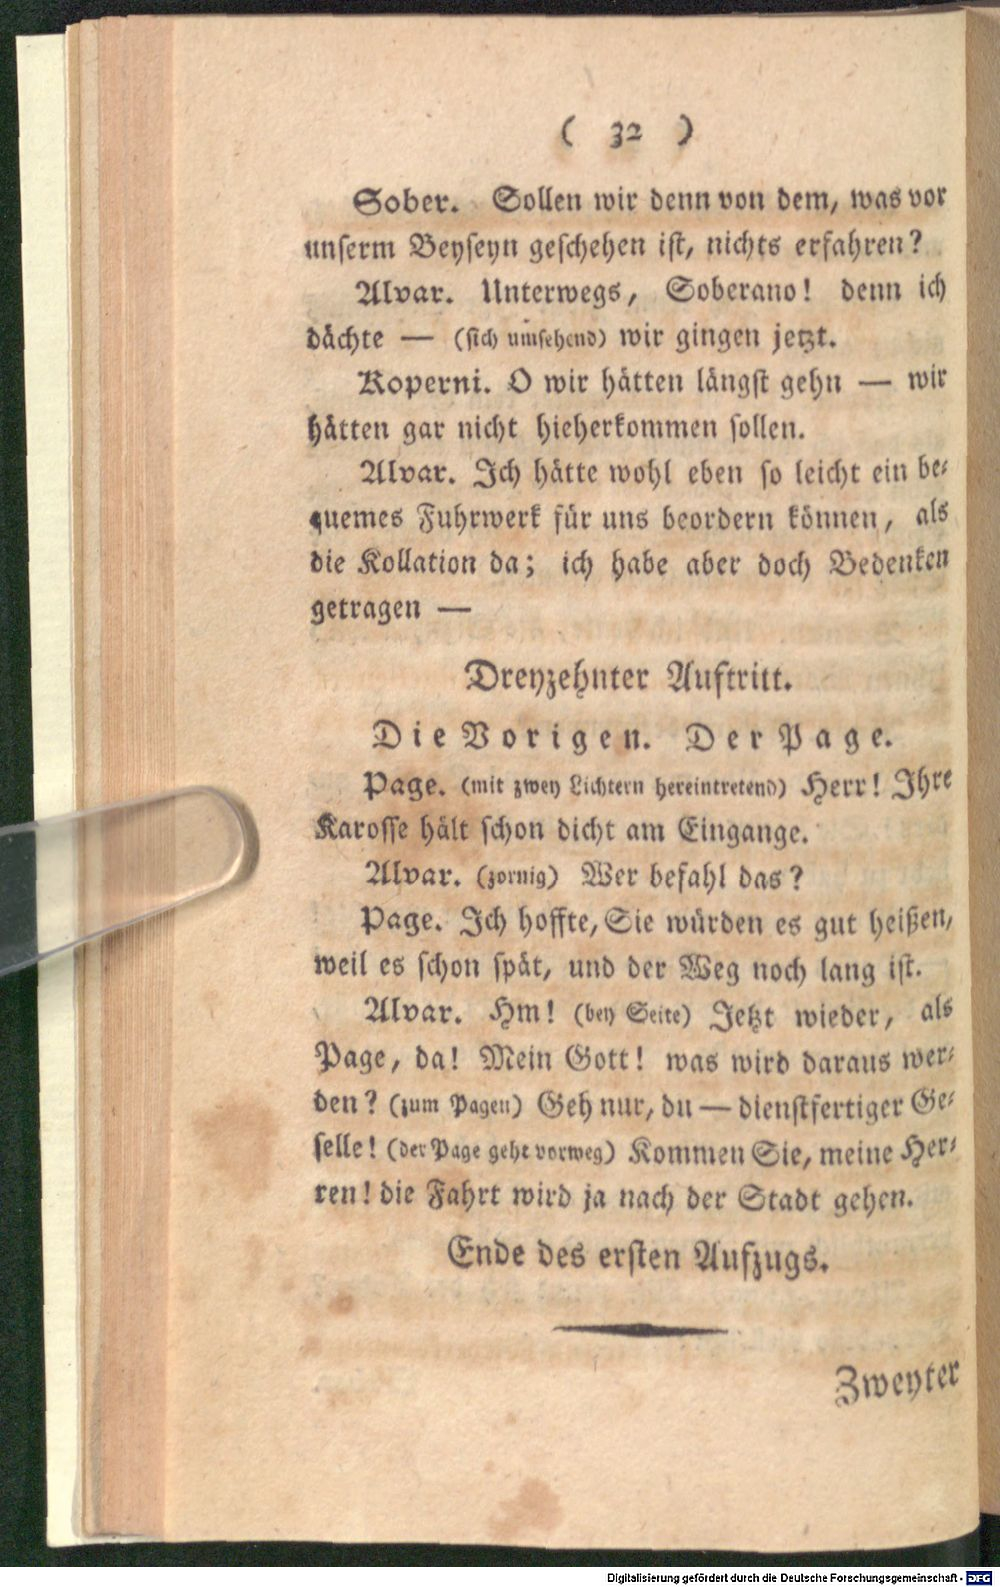 ( 32 )
Sober. Sollen wir denn von dem, was vor
unserm Beyseyn geschehen ist, nichts erfahren?
Alvar. Unterwegs, Soberano! denn ich
dächte — (sich umsehend) wir gingen jetzt.
Koperni. O wir hätten längst gehn — wir
hätten gar nicht hieherkommen sollen.
Alvar. Ich hätte wohl eben so leicht ein be-
quemes Fuhrwerk für uns beordern können, als
die Kollation da; ich habe aber doch Bedenken
getragen —
Dreyzehnter Auftritt.
Die Vorigen. Der Page.
Page. (mit zwey Lichtern hereintretend) Herr! Ihre
Karosse hält schon dicht am Eingange.
Alvar. (zornig) Wer befahl das?
Page. Ich hoffte, Sie würden es gut heißen,
weil es schon spät, und der Weg noch lang ist.
Alvar. Hm! (bey Seite) Jetzt wieder, als
Page, da! Mein Gott! was wird daraus wer-
den? (zum Pagen) Geh nur, du — dienstfertiger Ge-
selle! (der Page geht vorweg) Kommen Sie, meine Her-
ren! die Fahrt wird ja nach der Stadt gehen.
Ende des ersten Aufzugs.
Zweyter
Digitalisierung gefördert durch die Deutsche Forschungsgemeinschaft - DFG